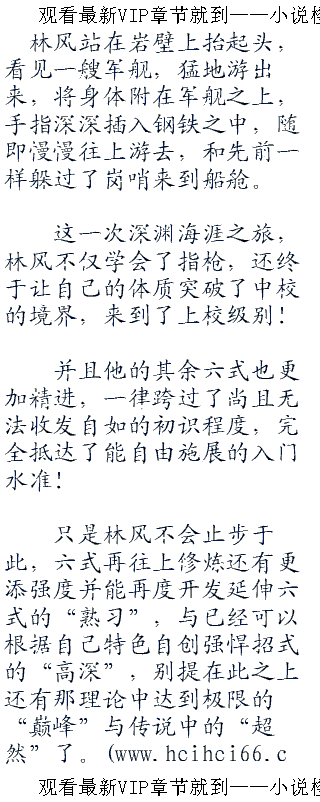 观看最新VIP章节就到——小说检
林风站在岩壁上抬起头，
看见一艘军舰，猛地游出
来，将身体附在军舰之上，
手指深深插入钢铁之中，随
即慢慢往上游去，和先前一
样躲过了岗哨来到船舱。
这一次深渊海涯之旅，
林风不仅学会了指枪，还终
于让自己的体质突破了中校
的境界，来到了上校级别！
并且他的其余六式也更
加精进，一律跨过了尚且无
法收发自如的初识程度，完
全抵达了能自由施展的入门
水准！
只是林风不会止步于
此，六式再往上修炼还有更
添强度并能再度开发延伸六
式的“熟习”，与已经可以
根据自己特色自创强悍招式
的“高深”，别提在此之上
还有那理论中达到极限的
“巅峰”与传说中的“超
然”了。(www.hcihci66.c
观看最新VIP章节就到——小说检